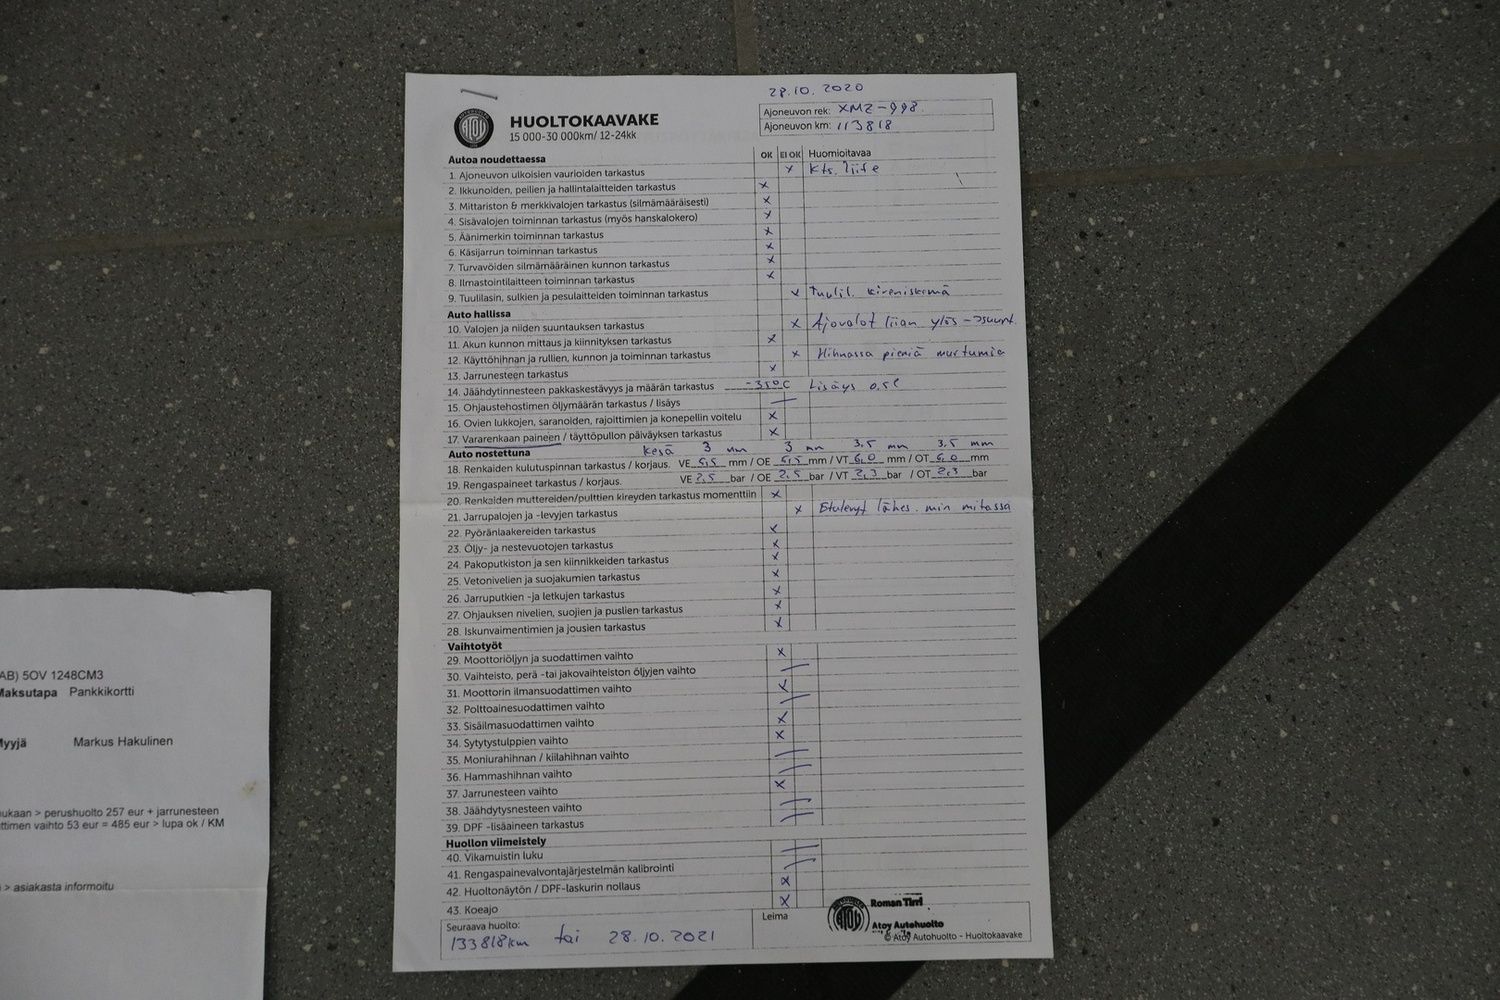 28.10. 2020
ATOY
HUOLTOKAAVAKE
15 000-30 000km/ 12-24kk
Ajoneuvon rek: XMZ-998
Ajoneuvon km: 113818
Autoa noudettaessa OK EI OK Huomioitavaa
1. Ajoneuvon ulkoisien vaurioiden tarkastus x kts. liite
2. Ikkunoiden, peilien ja hallintalaitteiden tarkastus x
3. Mittariston & merkkivalojen tarkastus (silmämääräisesti) x
4. Sisävalojen toiminnan tarkastus (myös hanskalokero) x
5. Äänimerkin toiminnan tarkastus x
6. Käsijarrun toiminnan tarkastus x
7. Turvavöiden silmämääräinen kunnon tarkastus x
8. Ilmastointilaitteen toiminnan tarkastus x
9. Tuulilasin, sulkien ja pesulaitteiden toiminnan tarkastus x Tuulil. kiveniskemä
Auto hallissa
10. Valojen ja niiden suuntauksen tarkastus x Ajovalot liian ylös
11. Akun kunnon mittaus ja kiinnityksen tarkastus x
12. Käyttöhihnan ja rullien, kunnon ja toiminnan tarkastus x Hihnassa pieniä murtumia
13. Jarrunesteen tarkastus x
14. Jäähdytinnesteen pakkaskestävyys ja määrän tarkastus -35°C Lisäys 0,5l
15. Ohjaustehostimen öljymäärän tarkastus / lisäys —
16. Ovien lukkojen, saranoiden, rajoittimien ja konepellin voitelu x
17. Vararenkaan paineen / täyttöpullon päiväyksen tarkastus x
Auto nostettuna kesä 3 mm 3 mm 3.5 mm 3.5 mm
18. Renkaiden kulutuspinnan tarkastus / korjaus. VE 5,5 mm / OE 5,5 mm / VT 6,0 mm / OT 6,0 mm
19. Rengaspaineet tarkastus / korjaus. VE 2,5 bar / OE 2,5 bar / VT 2,3 bar / OT 2,3 bar
20. Renkaiden muttereiden/pulttien kireyden tarkastus momenttiin x
21. Jarrupalojen ja -levyjen tarkastus x Etulevyt lähes. min mitassa
22. Pyöränlaakereiden tarkastus x
23. Öljy- ja nestevuotojen tarkastus x
24. Pakoputkiston ja sen kiinnikkeiden tarkastus x
25. Vetonivelien ja suojakumien tarkastus x
26. Jarruputkien -ja letkujen tarkastus x
27. Ohjauksen nivelien, suojien ja puslien tarkastus x
28. Iskunvaimentimien ja jousien tarkastus x
Vaihtotyöt
29. Moottoriöljyn ja suodattimen vaihto x
30. Vaihteisto, perä -tai jakovaihteiston öljyjen vaihto —
31. Moottorin ilmansuodattimen vaihto x
32. Polttoainesuodattimen vaihto —
33. Sisäilmasuodattimen vaihto x
34. Sytytystulppien vaihto x
35. Moniurahihnan / kiilahihnan vaihto —
36. Hammashihnan vaihto —
37. Jarrunesteen vaihto x
38. Jäähdytysnesteen vaihto —
39. DPF -lisäaineen tarkastus —
Huollon viimeistely
40. Vikamuistin luku —
41. Rengaspainevalvontajärjestelmän kalibrointi —
42. Huoltonäytön / DPF-laskurin nollaus x
43. Koeajo x
Seuraava huolto:
133818km tai 28.10.2021
Leima
ATOY
Roman Tirri
Atoy Autohuolto
© Atoy Autohuolto - Huoltokaavake
AB) 5OV 1248CM3
Maksutapa Pankkikortti
Myyjä Markus Hakulinen
ukaan > perushuolto 257 eur + jarrunesteen
ttimen vaihto 53 eur = 485 eur > lupa ok / KM
> asiakasta informoitu